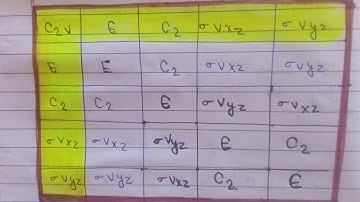 C2v E C2 σvxz σvyz
E E C2 σvxz σvyz
C2 C2 E σvyz σvxz
σvxz σvxz σvyz E C2
σvyz σvyz σvxz C2 E